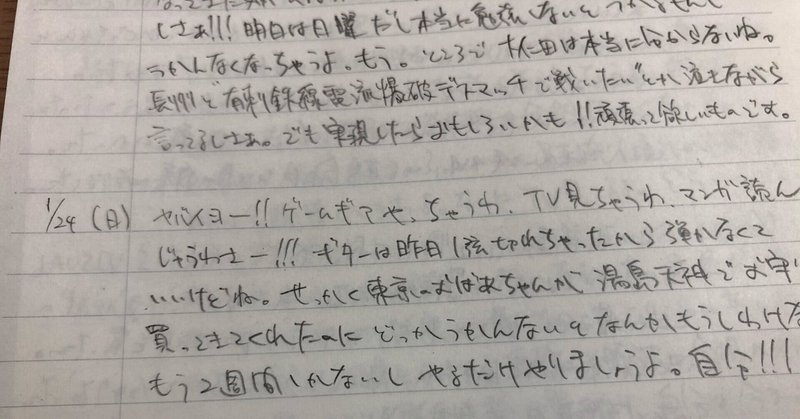 しさぁ!!!明日は日曜だし本当に勉強しないとうかりません
うかんなくなっちゃうよ。もう。ところで大仁田は本当に分からないね。
長州と"有刺鉄線電流爆破デスマッチで戦いたい"とか泣きながら
言ってるしさぁ。でも実現したらおもしろいかも!!頑張って欲しいものです。
1/24(日) ヤバイヨー!!ゲームギアや、ちゃうわ、TV見ちゃうわ、マンガ読ん
じゃうわさー!!!ギターは昨日1弦切れちゃったから弾かなくて
いいけどね。せっかく東京のおばあちゃんが湯島天神でお守
買ってきてくれたのにどっかうかんないとなんかもうしわけな
もう2週間しかないしやるだけやりましょうよ。自分!!!